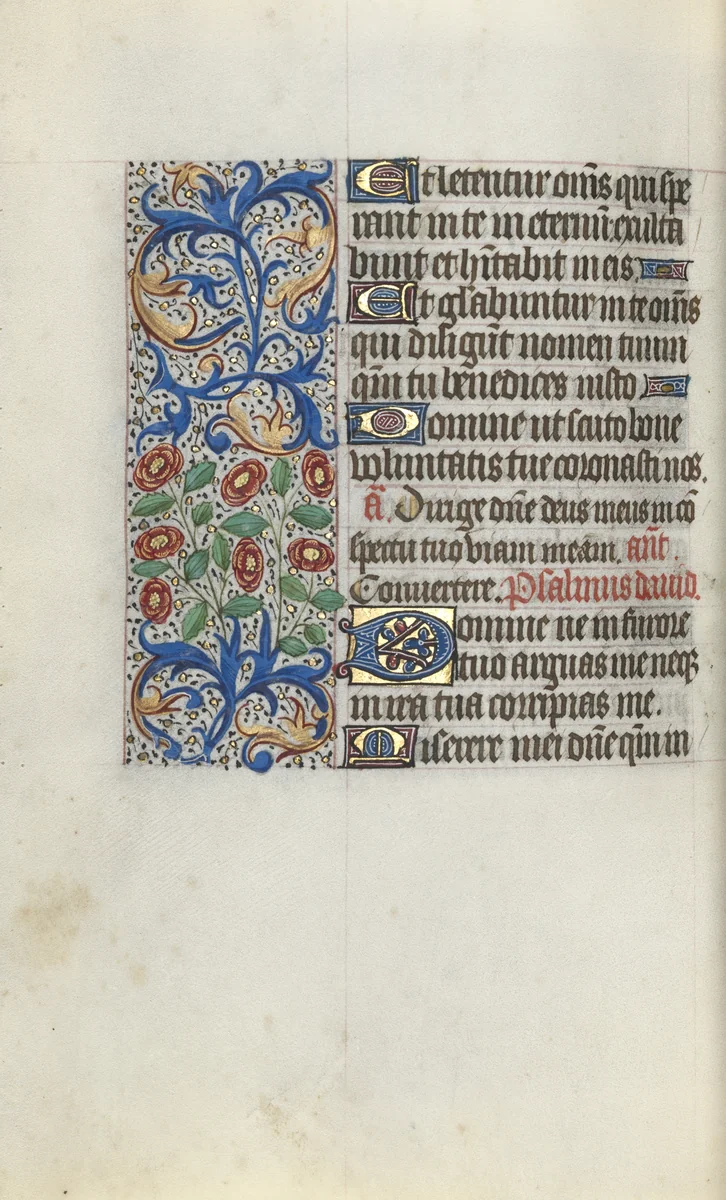 Et letentur om̄s qui spe
rant in te in eternū exulta
bunt et hītabit in eis.
Et gl̄abuntur in te om̄s
qui diligūt nomen tuum
qm̄ tu benedices iusto
Domine ut scuto bone
voluntatis tue coronasti nos.
ā. Dirige dn̄e deus meus in cō
spectu tuo viam meam. ant̄.
Convertere. Psalmus david.
Domine ne in furore
tuo arguas me neqꝫ
in ira tua corripias me.
Miserere mei dn̄e qm̄ in